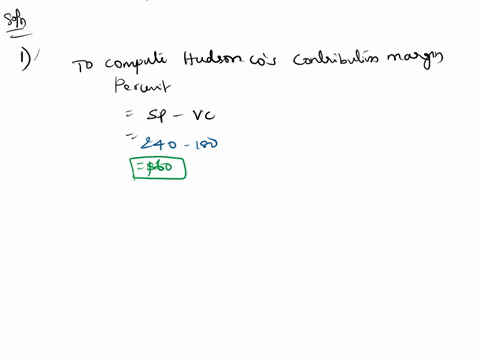 Soln
1) To compute Hudson co's contribution margin
Per unit
= SP - VC
= 240 - 180
= $60